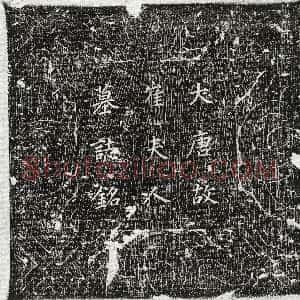 大唐故
崔夫人
墓誌銘
Shufazidian.COM